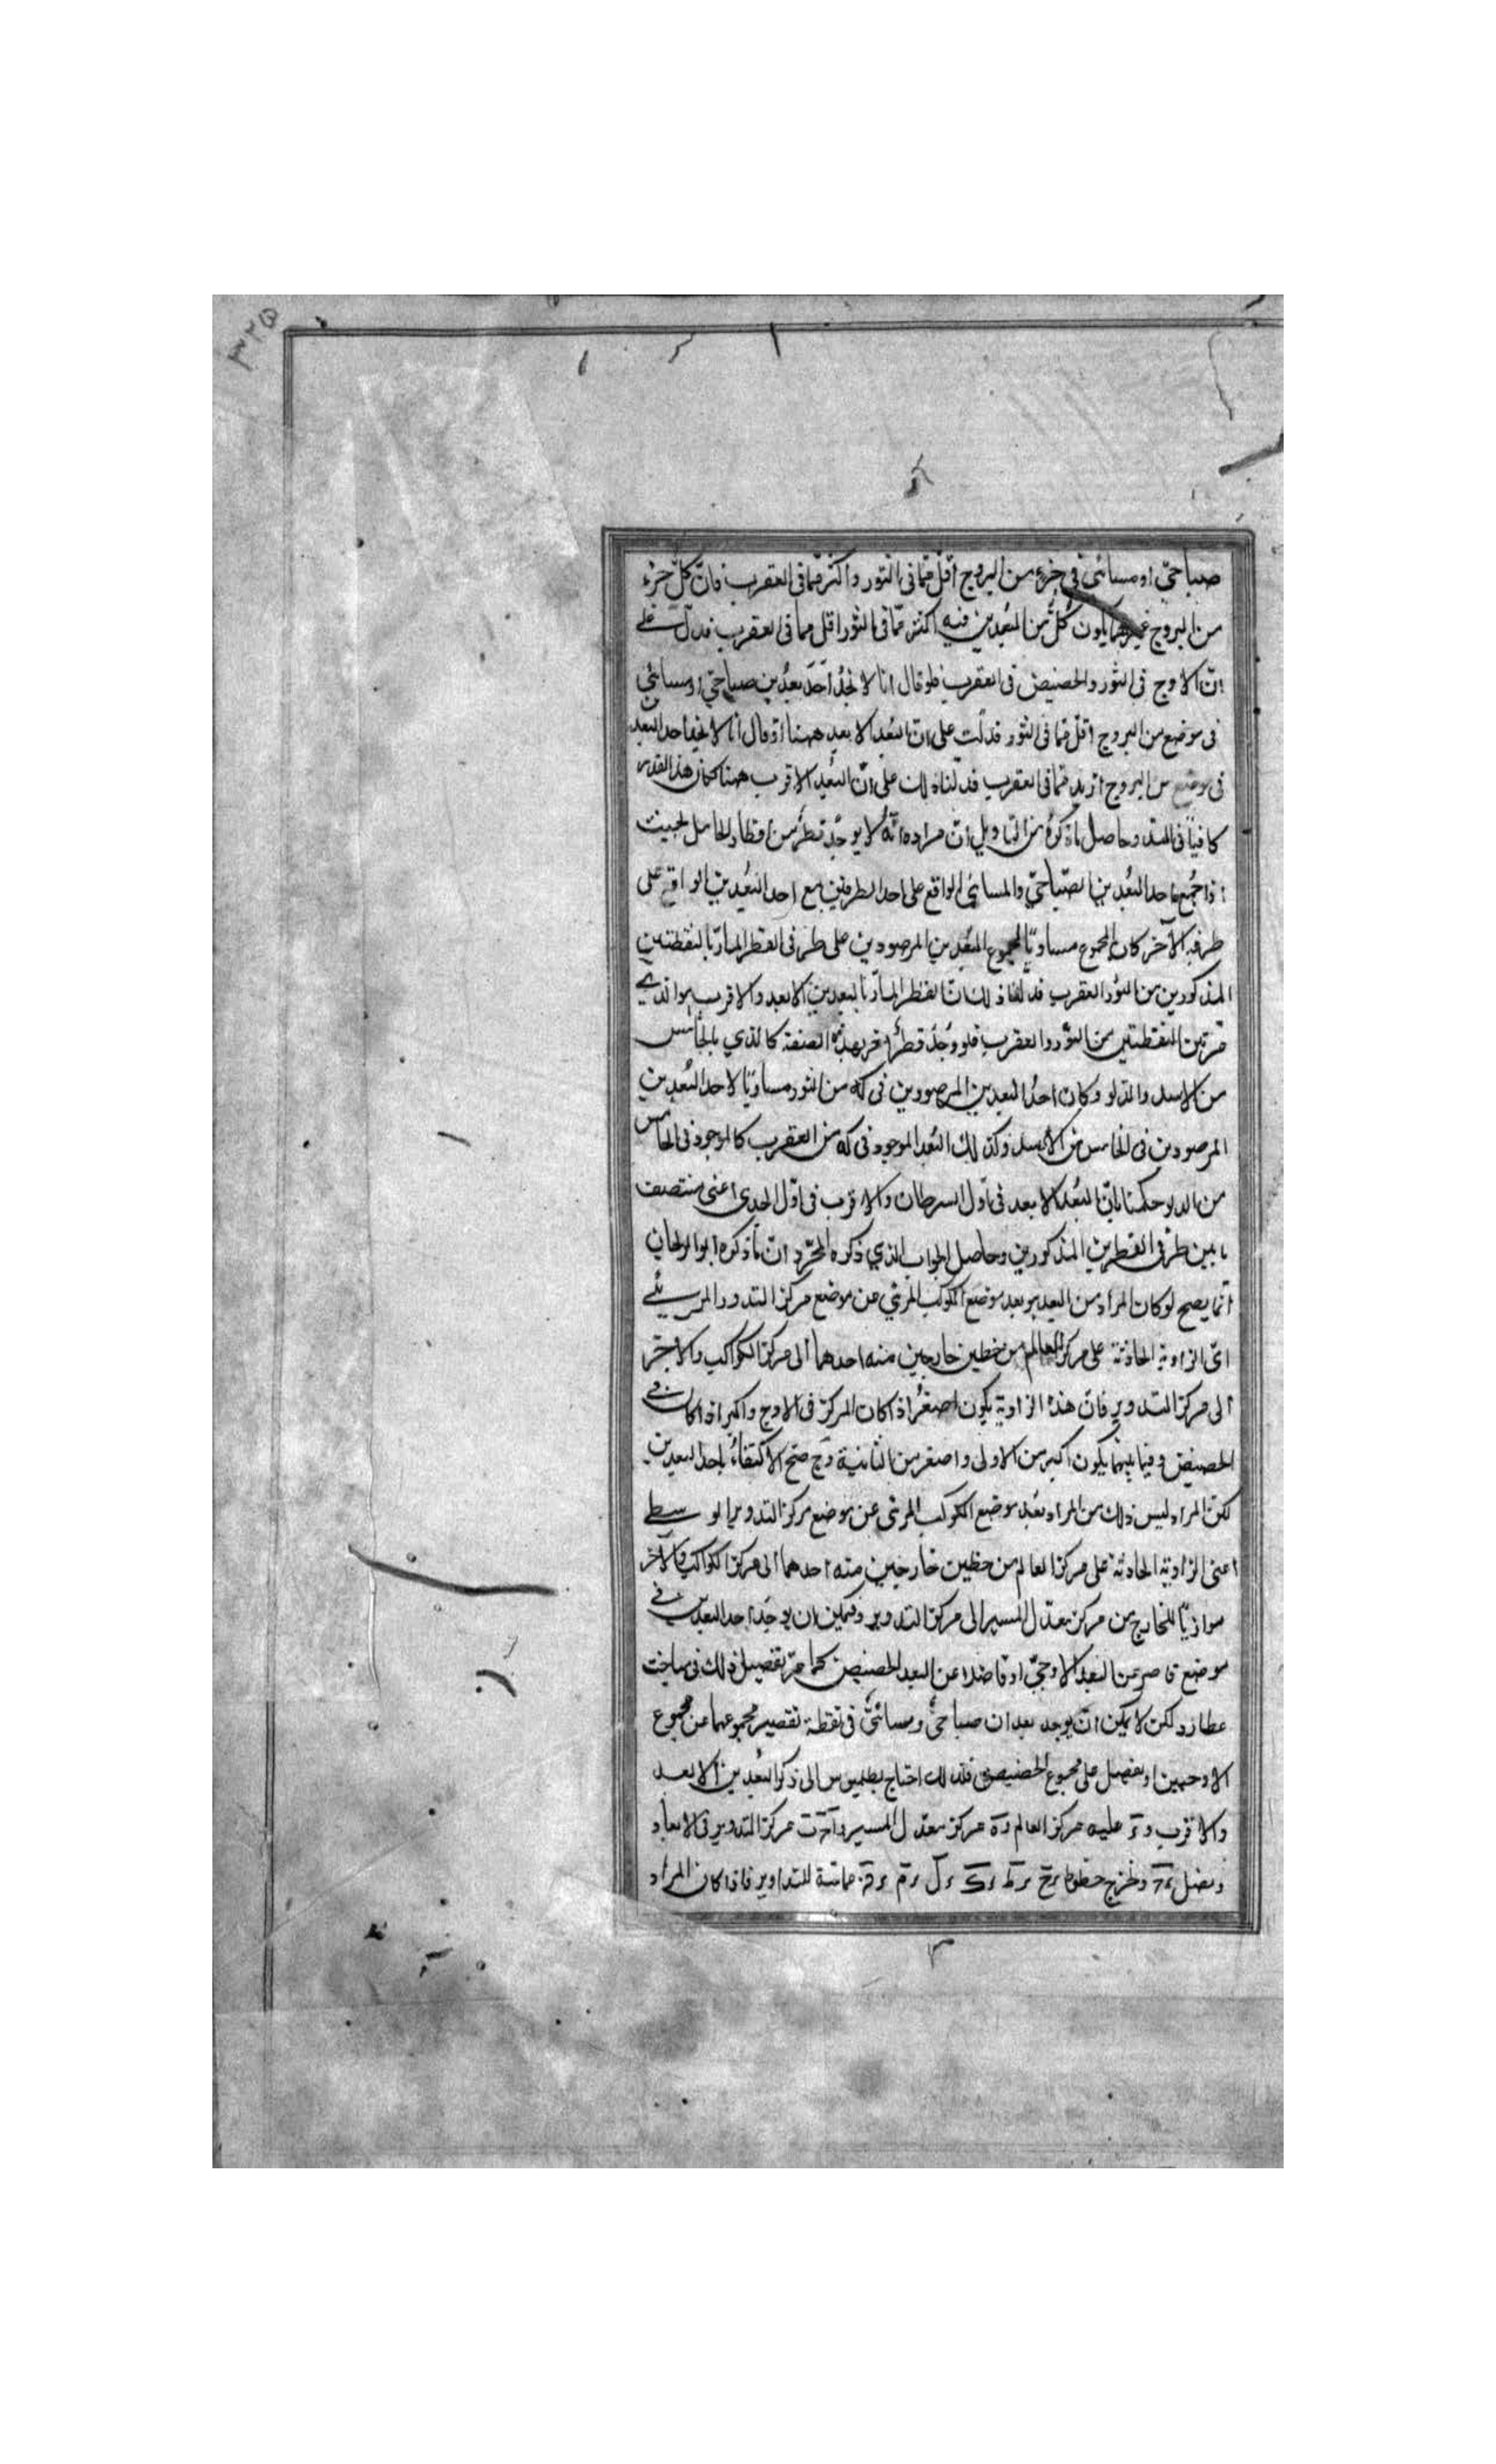 ٣٢٥
صباحيّ او مسائي في جزء من البروج اقلّ ممّا في الثور واكثر ممّا في العقرب فانّ كلّ جزء
من البروج غيرهما يكون كلّ من البُعدين فيه اكثر ممّا في الثور اقل مما في العقرب فدلّ على
انّ الاوج في الثور والحضيض في العقرب فلو قال انا لا نجدُ احَدَ بعدُين صباحيّ او مسائيّ
في موضع من البروج اقلّ ممّا في الثور فدلّت على انّ البُعد الابعد ههنا او قال انا لا نجد احد البعدين
في موضع من البروج ازيد ممّا في العقرب فدلّنا ذلك على انّ البُعد الاقرب ههنا لكان هذا القدر
كافياً في المسئلة وحاصل ما ذكرهُ من التاويل انّ مراده انّه لا يوجَد قطرٌ من اقطار الحامل بحيث
اذا جُمع احد البُعدين الصّباحيّ والمسائي الواقع على احد الطرفين مع احد البُعدين الواقع على
طرفه الآخر كان المجموع مساويًا لمجموع البُعدين المرصودين على طرفي القطر المارّ بالنقطتين
المذكورين من الثور والعقرب فدلّنا ذلك انّ القطر المارّ بالبعدين الابعد والاقرب هو الذي
قرّ بين النقطتين من الثّور والعقرب فلو وُجدَ قطرٌ اخر بهذه الصفة كالذي بالخامس
من الاسد والدلو وكان احدُ البعدين المرصودين في كه من الثور مساويًا لاحد البُعدين
المرصودين في الخامس من الاسد وكذلك البُعد الموجود في كه من العقرب كالموجود في الخامس
من الدلو حكمنا بانّ البُعد الابعد في اول السرطان والاقرب في اوّل الجدي اعني منتصف
ما بين طرفي القطرين المذكورين وحاصل الجواب الذي ذكره المحرّر انّ ما ذكره ابو الريحان
انّما يصح لو كان المراد من البعد هو بعد موضع الكوكب المرئي من موضع مركز التدوير المرئي
اي الزاوية الحادثة على مركز العالم من خطين خارجين منه احدهما الى مركز الكواكب والاخر
الى مركز التدوير فانّ هذه الزاوية يكون اصغرُ اذا كان المركز في الاوج واكبر اذا كان في
الحضيض وفيما بينهما يكون اكبر من الاولى واصغر من الثانية وح صحّ الاكتفاءُ باحد البعدين
لكن المراد ليس ذلك من المراد بعد موضع الكوكب المرئي عن موضع مركز التدوير الوسطي
اعني الزاوية الحادثة على مركز العالم من خطين خارجين منه احدهما الى مركز الكواكب والآخر
موازيًا للخارج من مركز معدّل المسير الى مركز التدوير وفيمكن ان يوجَد احد البعدين في
موضع قاصر عن البعد الاوجيّ او فاضلا عن البعد الحضيضي كما مرّ تفصيل ذلك في مباحث
عطارد لكن لا يمكن ان يوجد بعدان صباحيٌّ ومسائيٌّ في نقطة تقصير مجموعهما عن مجموع
الاوجيين او يفضل على مجموع الحضيضيين فلذلك احتاج بطلميوس الى ذكر البُعدين الابعد
والاقرب و عليه مركز العالم و ه مركز معدّل المسير و مركز التدوير في الابعاد
ونصل ونخرج خطوط رح رط رك رل رم رق مماسّة للتداوير فاذا كان المراد